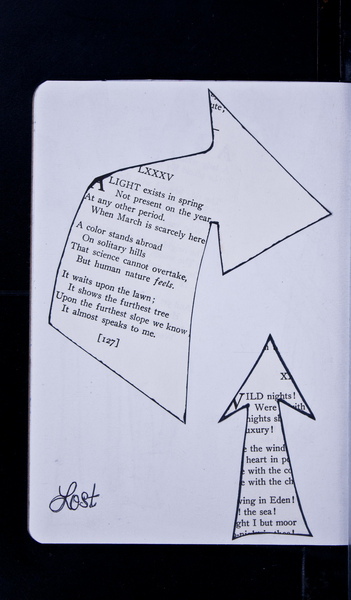 ute;
LXXXV
A LIGHT exists in spring
Not present on the year
At any other period.
When March is scarcely here
A color stands abroad
On solitary hills
That science cannot overtake,
But human nature feels.
It waits upon the lawn;
It shows the furthest tree
Upon the furthest slope we know
It almost speaks to me.
[127]
X
ILD nights!
Were ith
nights s
uxury!
e the wind
heart in p
e with the co
e with the ch
ving in Eden!
! the sea!
ght I but moor
Lost